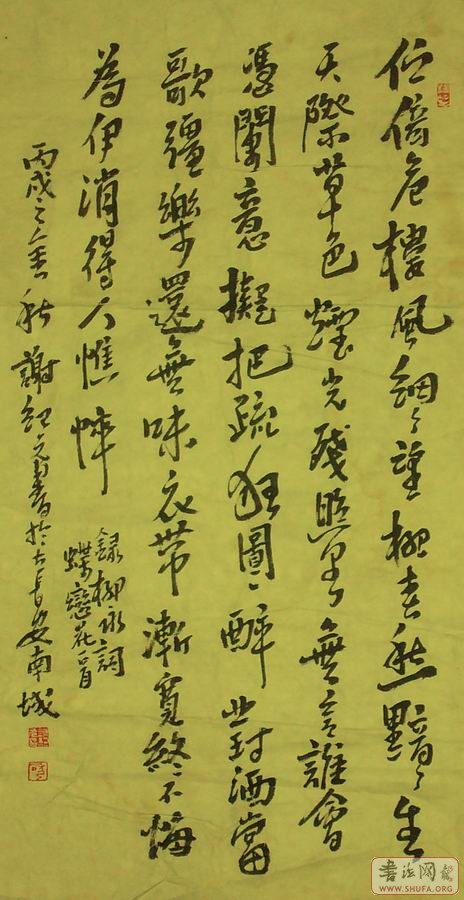 伫倚危樓風細々望極春愁黯々生
天際草色煙光殘照里無言誰會
憑闌意擬把疏狂圖一醉對酒當
歌彊樂還無味衣帶漸寬終不悔
為伊消得人憔悴
錄柳永詞
蝶戀花一首
丙戌之金秋謝紀元書於古長安南城
書法网
WWW.SHUFA.ORG